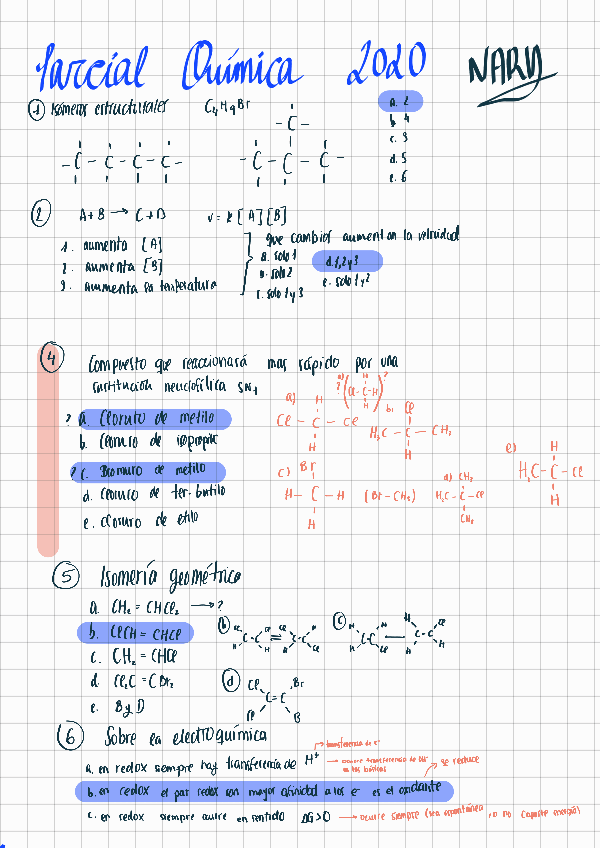 Parcial Química 2020 NARY
① Isómeros estructurales C₄H₉Br
a. 2
b. 4
c. 3
d. 5
e. 6
- C - C - C - C -
- C -
- C - C - C -
② A + B → C + D v = k [A] [B]
1. aumenta [A]
2. aumenta [B]
3. aumenta la temperatura
que cambios aumentan la velocidad
a. solo 1
b. solo 2
c. solo 1 y 3
d. 1, 2 y 3
e. solo 1 y 2
④ Compuesto que reaccionará mas rápido por una
sustitución neucleofílica SN₁
? a. Cloruro de metilo
b. Cloruro de isopropilo
? c. Bromuro de metilo
d. Cloruro de ter-butilo
e. cloruro de etilo
a) H
Cl - C - Cl
H
a) ? ( H Cl - C - H H ) ?
b) Cl
H₃C - C - CH₃
H
c) Br
H - C - H (Br - CH₃)
H
d) CH₃
H₃C - C - Cl
CH₃
e) H
H₃C - C - Cl
H
⑤ Isomería geométrica
a. CH₂ = CHCl₂ → ?
b. ClCH = CHCl
c. CH₂ = CHCl
d. Cl₂C = CBr₂
e. B y D
ⓑ Cl Cl C - C H H = Cl H C - C H Cl
ⓒ H H C - C H Cl — H Cl C - C H H
ⓓ Cl Br C = C Cl B
⑥ Sobre la electroquímica
a. en redox siempre hay transferencia de H⁺
→ transferencia de e⁻
b. en redox el par redox con mayor afinidad a los e⁻ es el oxidante
→ se reduce
c. en redox siempre ocurre en sentido ΔG > 0 → ocurre siempre (sea espontánea o no